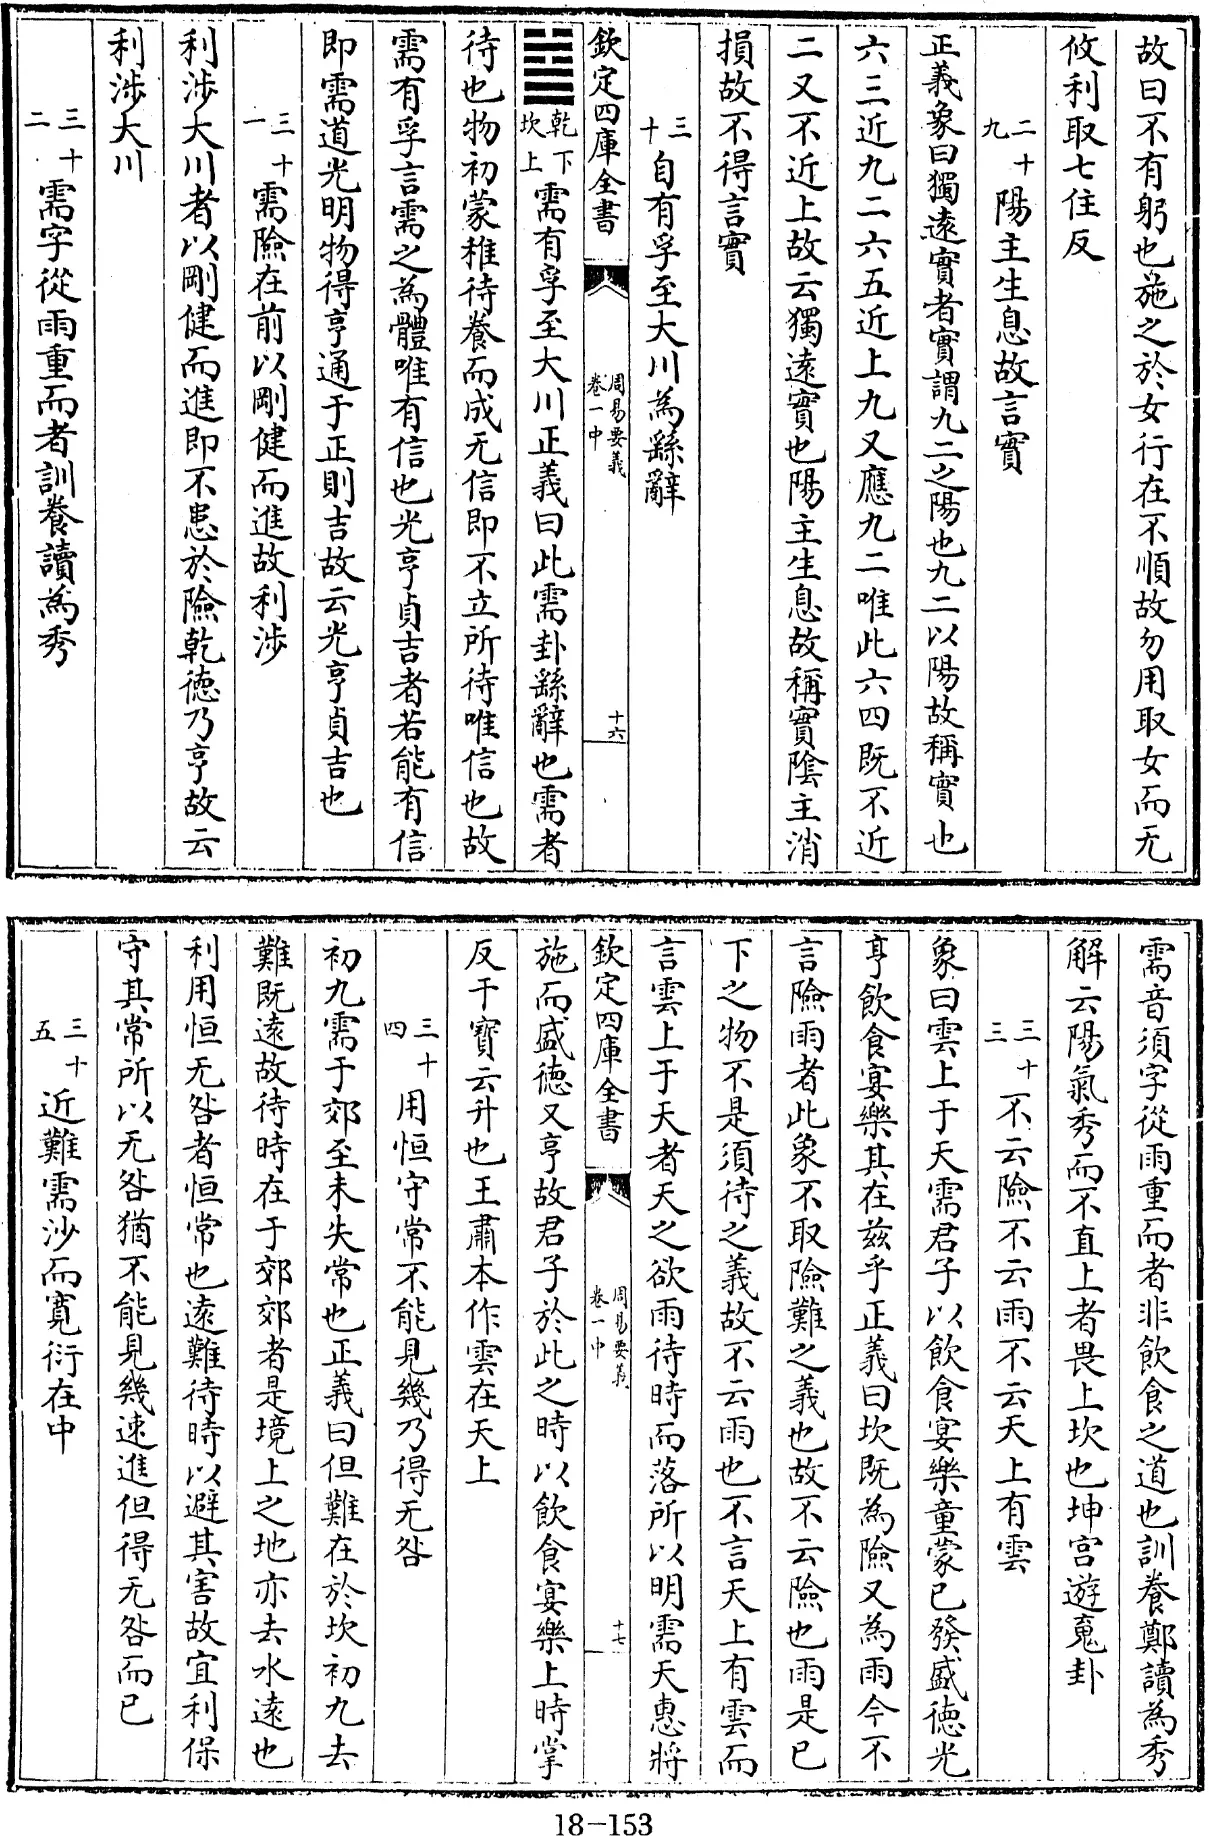 故曰不有躬也施之於女行在不順故勿用取女而无
攸利取七住反
二十九 陽主生息故言實
正義象曰獨遠實者實謂九二之陽也九二以陽故稱實也
六三近九二六五近上九又應九二唯此六四既不近
二又不近上故云獨遠實也陽主生息故稱實隂主消
損故不得言實
三十 自有孚至大川為繇辭
欽定四庫全書 周易要義 卷一中 十六
䷄ 乾下 坎上 需有孚至大川正義曰此需卦繇辭也需者
待也物初蒙稚待養而成无信即不立所待唯信也故
需有孚言需之為體唯有信也光亨貞吉者若能有信
即需道光明物得亨通于正則吉故云光亨貞吉也
三十一 需險在前以剛健而進故利涉
利涉大川者以剛健而進即不患於險乾徳乃亨故云
利涉大川
三十二 需字從雨重而者訓養讀為秀
需音須字從雨重而者非飲食之道也訓養鄭讀為秀
解云陽氣秀而不直上者畏上坎也坤宮遊䰟卦
三十三 不云險不云雨不云天上有雲
象曰雲上于天需君子以飲食宴樂童蒙已發盛徳光
亨飲食宴樂其在兹乎正義曰坎既為險又為雨今不
言險雨者此象不取險難之義也故不云險也雨是已
下之物不是須待之義故不云雨也不言天上有雲而
言雲上于天者天之欲雨待時而落所以明需天惠將
欽定四庫全書 周易要義 卷一中 十七
施而盛徳又亨故君子於此之時以飲食宴樂上時掌
反干寶云升也王肅本作雲在天上
三十四 用恒守常不能見幾乃得无咎
初九需于郊至未失常也正義曰但難在於坎初九去
難既遠故待時在于郊郊者是境上之地亦去水遠也
利用恒无咎者恒常也遠難待時以避其害故宜利保
守其常所以无咎猶不能見幾速進但得无咎而已
三十五 近難需沙而寛衍在中
18-153